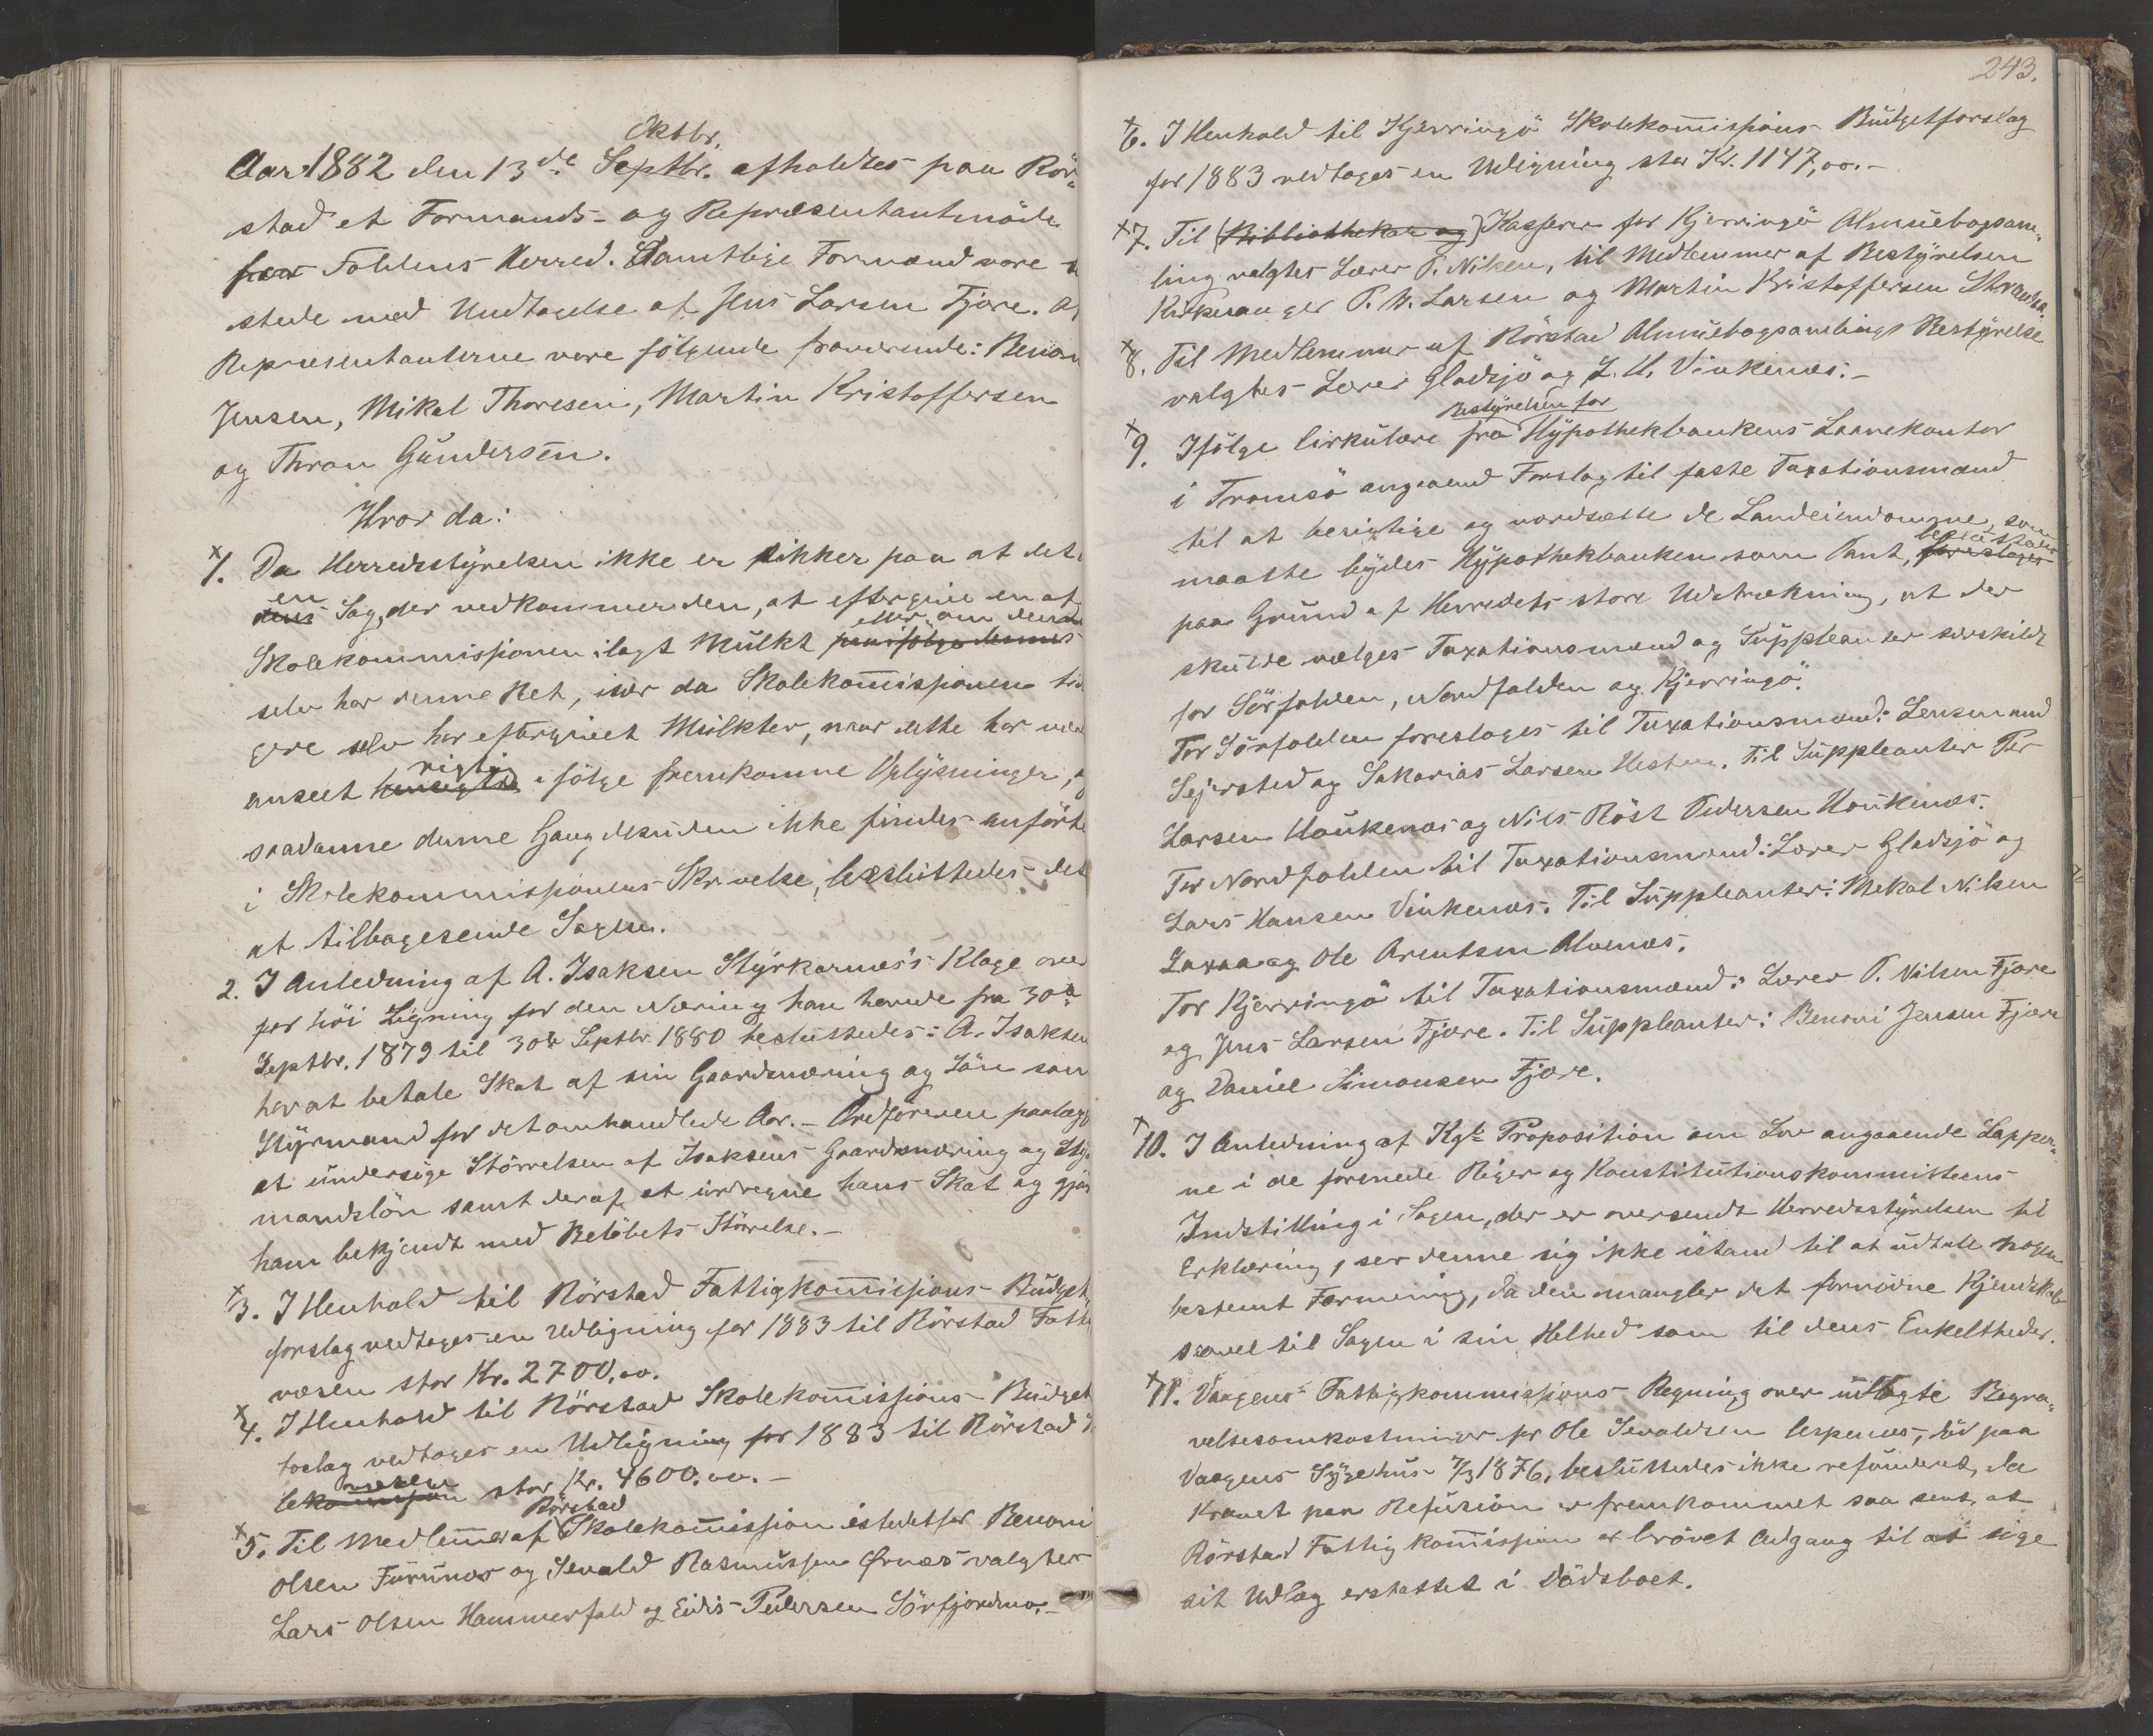 Oktbr.
Aar 1882 den 13de Septbr. afholdtes paa Rör-
stad et Formands- og Repræsentantmöde
for Foldens Herred. Samtlige Formænd vare
stede med Undtagelse af Jens Larsen Fjære. Af
Repræsentanterne vare fölgende fraværende: Benoni
Jensen, Mikal Thoresen, Martin Kristoffersen
og Thron Gundersen.
Hvor da:
x1. Da Herredsstyrelsen ikke er sikker paa at det
en
dens Sag, der vedkommer den, at eftergive en af
eller om denne
Skolekommissionen ilagt Mulkt
selv har denne Ret, især da Skolekommissionen tid
gere selv har eftergivet Mulkter, naar dette har været
rigtig
anseet hensigts ifölge fremkomne Oplysninger,
saadanne denne Gang desuden ikke findes anförte
i Skolekommissionens Skrivelse, besluttedes det
at tilbagesende Sagen.
2. I Anledning af A. Isaksen Styrkarnæs's Klage over
for höi Ligning for den Næring han havde fra 30te
Septbr. 1879 til 30te Septbr 1880 besluttedes: A. Isaksen
har at betale Skat af sin Gaardsnæring og Lön som
Styrmand for det omhandlede Aar. - Ordföreren paalægges
at undersöge Störrelsen af Isaksens Gaardsnæring og Styr
mandslön samt deraf at udregne hans Skat og gjöre
ham bekjendt med Belöbets Störrelse. -
x3. I Henhold til Rörstad Fattigkommissions Budget
forslag vedtoges en Udligning for 1883 til Rörstad Fattig
væsen stor Kr. 2700,00.
x4. I Henhold til Rörstad Skolekommissions Budget
forslag vedtoges en Udligning for 1883 til Rörstad
væsen
lekommission stor Kr. 4600,00. -
Rörstad
x5. Til Medlemmer af Skolekommission istedetfor Benoni
Olsen Furunæs og Sevald Rasmussen Ørnæs valgtes
Lars Olsen Hammerfald og Eidis Pedersen Sörfjordmo. -
243.
x6. I Henhold til Kjerringö Skolekommissions Budgetforslag
for 1883 vedtoges en Udligning stor Kr. 1147,00. -
x7. Til (Bibliothekar og) Kasserer for Kjerringö Almuebogsam-
ling valgtes Lærer P. Nilsen, til Medlemmer af Bestyrelsen
Kirkesanger P. W. Larsen og Martin Kristoffersen
x8. Til Medlemmer af Rörstad Almuebogsamlings Bestyrelse
valgtes Lærer Gladsjö og L. H. Vinkenæs. -
Bestyrelsen for
x9. Ifölge Cirkulære fra Hypothekbankens Laanekontor
i Tromsö angaaend Forslag til faste Taxationsmænd
til at besigtige og værdsætte de Landeiendomme, som
besluttedes
maatte bydes Hypothekbanken som Pant, foreslages
paa Grund af Herredets store Udstrækning, at der
skulde vælges Taxationsmænd og Suppleanter særskildt
for Sörfolden, Nordfolden og Kjerringö.
For Sörfolden foreslages til Taxationsmænd: Lensmand
Sejersted og Sakarias Larsen. Til Suppleanter Per
Larsen Haukenæs og Nils Röst Pedersen Haukenæs.
For Nordfolden til Taxationsmænd: Lærer Gladsjö og
Lars Hansen Vinkenæs. Til Suppleanter: Mekal Nilsen
Laxaa og Ole Arentsen Alvenæs.
For Kjerringö til Taxationsmænd: Lærer P. Nilsen Fjære
og Jens Larsen Fjære. Til Suppleanter: Benoni Jensen Fjære
og Daniel Simonsen Fjære.
x10. I Anledning af Kgl. Proposition om Lov angaaende Lapper-
ne i de forenede Riger og Konstitutionskommitteens
Indstilling i Sagen, der er oversendt Herredsstyrelsen til
Erklæring, ser denne sig ikke istand til at udtale nogen
bestemt Formening, da den mangler det fornödne Kjendskab
saavel til Sagen i sin Helhed som til dens Enkeltheder.
x11. Vaagens Fattigkommissions Regning over udlagte Begra-
velsesomkostninger for Ole Sevaldsen Espenæs, död paa
Vaagens Sygehus 7/3 1876, besluttedes ikke refunderet, da
Kravet paa Refusion er fremkommet saa sent, at
Rörstad Fattigkommission er berövet Adgang til at söge
sit Udlæg erstattet i Dödsboet.